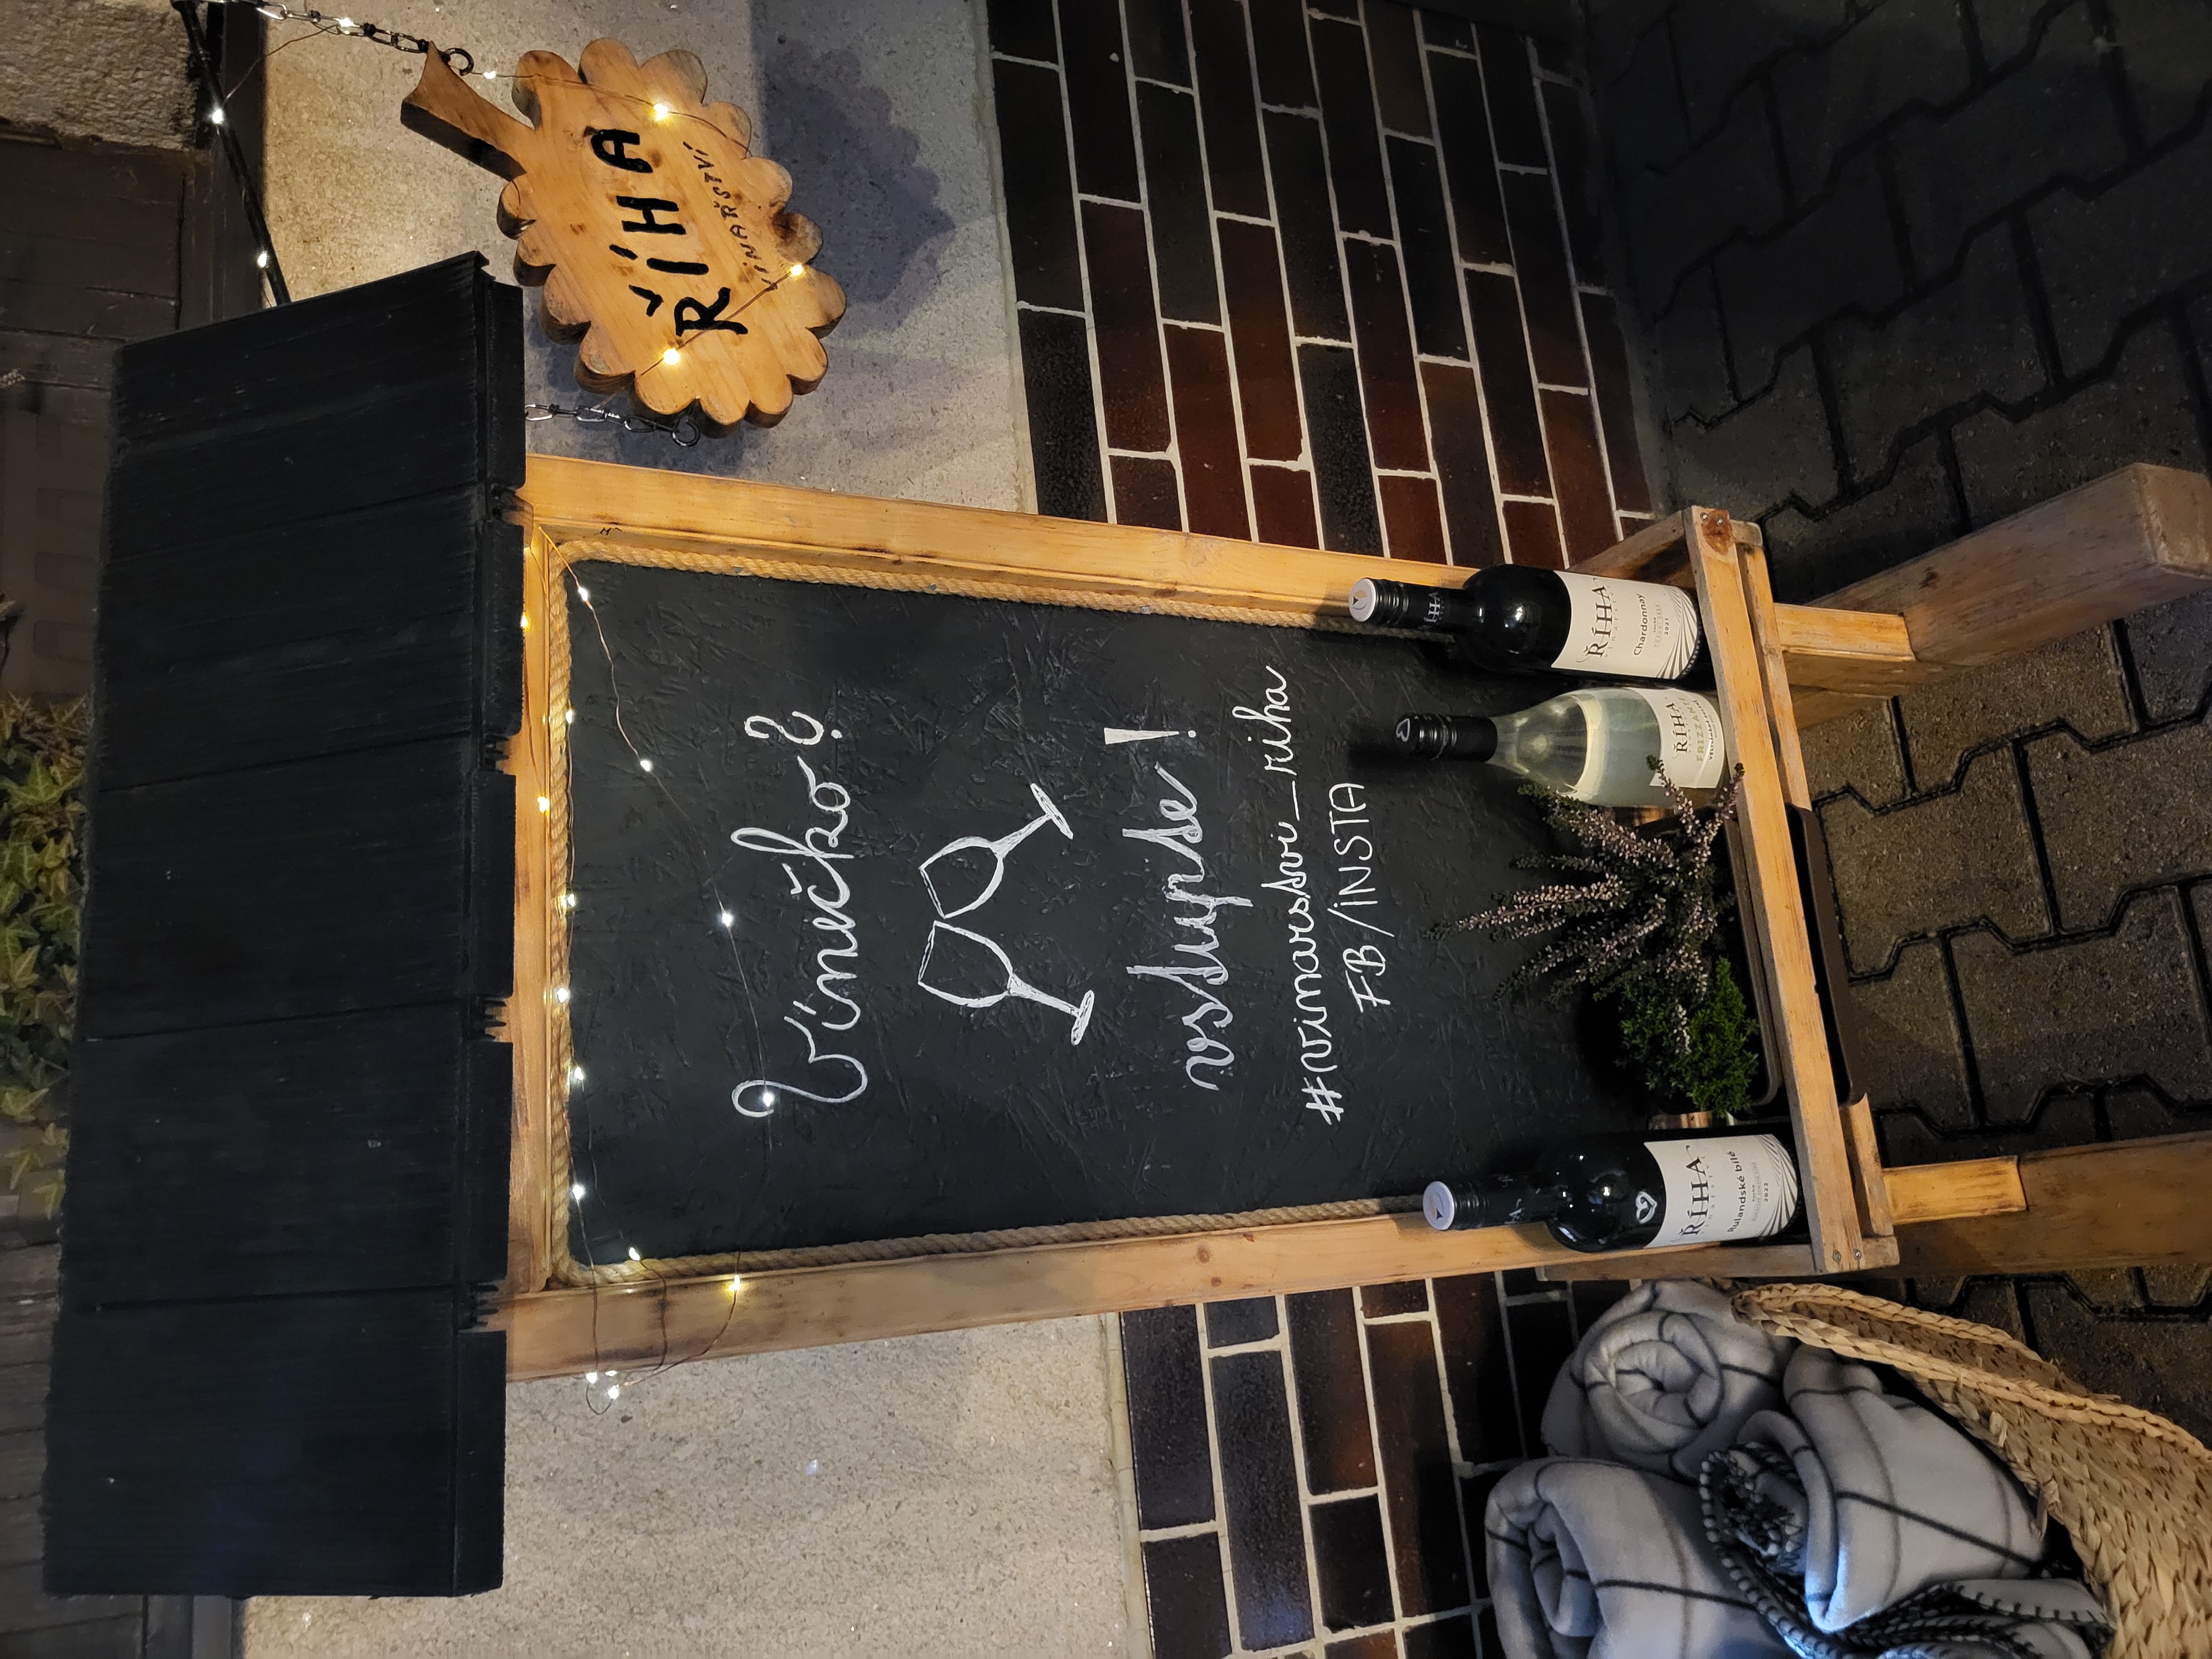 Vínečko?
vstupte!
#vinarstvi_riha
FB/iNSTA
ŘÍHA
ViNAŘSTVÍ
ŘÍHA
Rulandské bílé
2022
ŘÍHA
FRIZZANTE
ŘÍHA
Chardonnay
2021